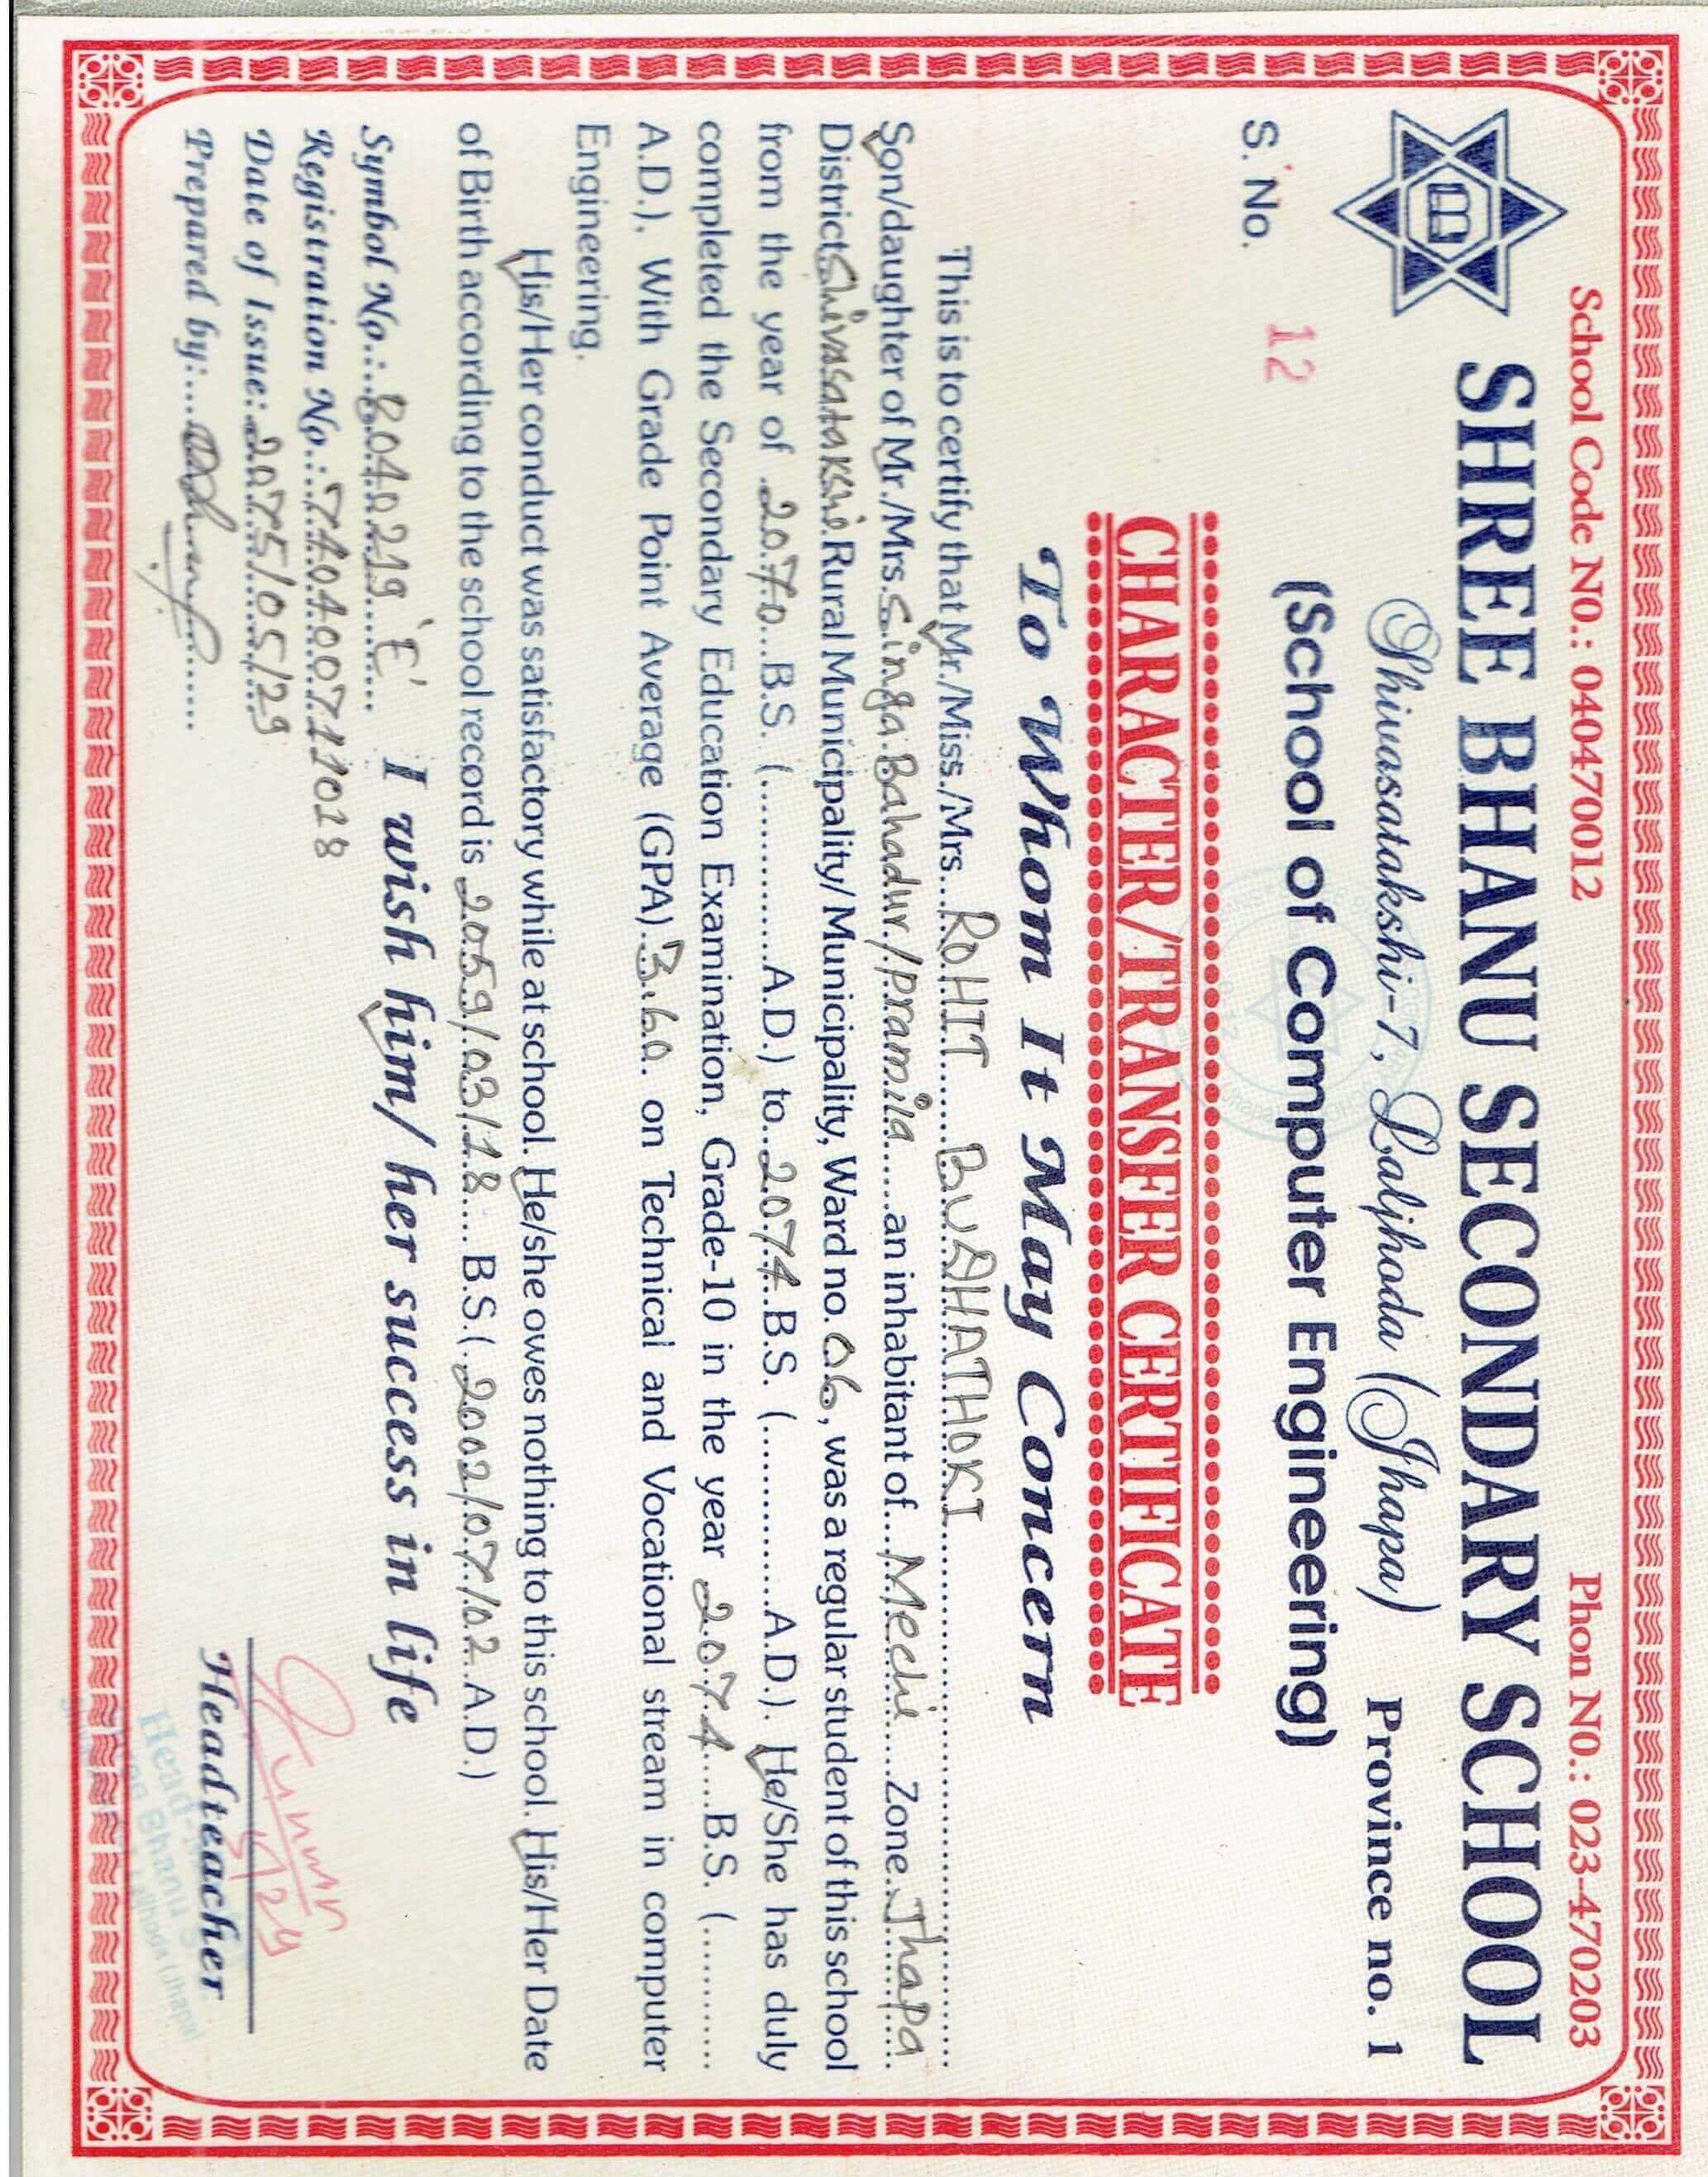 School Code N0.: 040470012 Phon N0.: 023-470203
SHREE BHANU SECONDARY SCHOOL
Shivasatakshi-7, Laljhoda (Jhapa) Province no. 1
(School of Computer Engineering)
S. No. 12
CHARACTER/TRANSFER CERTIFICATE
To Whom It May Concern
This is to certify that Mr./Miss./Mrs...ROHIT......BUDHATHOKI..............
Son/daughter of Mr./Mrs.Singa.Bahadur./pramila.....an inhabitant of...Mechi.....Zone..Jhapa..
District Shivasatakshi.Rural Municipality/Municipality, Ward no. 06, was a regular student of this school
from the year of .2070...B.S. (..............A.D.) to..2074..B.S. (..............A.D.). He/She has duly
completed the Secondary Education Examination, Grade-10 in the year 2074....B.S. (..........
A.D.). With Grade Point Average (GPA)..3.60. on Technical and Vocational stream in computer
Engineering.
His/Her conduct was satisfactory while at school. He/she owes nothing to this school. His/Her Date
of Birth according to the school record is 2059/03/18.... B.S.(.2002/07/02..A.D.)
Symbol No.:..8040219 'E'....... I wish him/ her success in life
Registration No.:..740400711018
Date of Issue:.2075/05/29
Prepared by:............
Headteacher